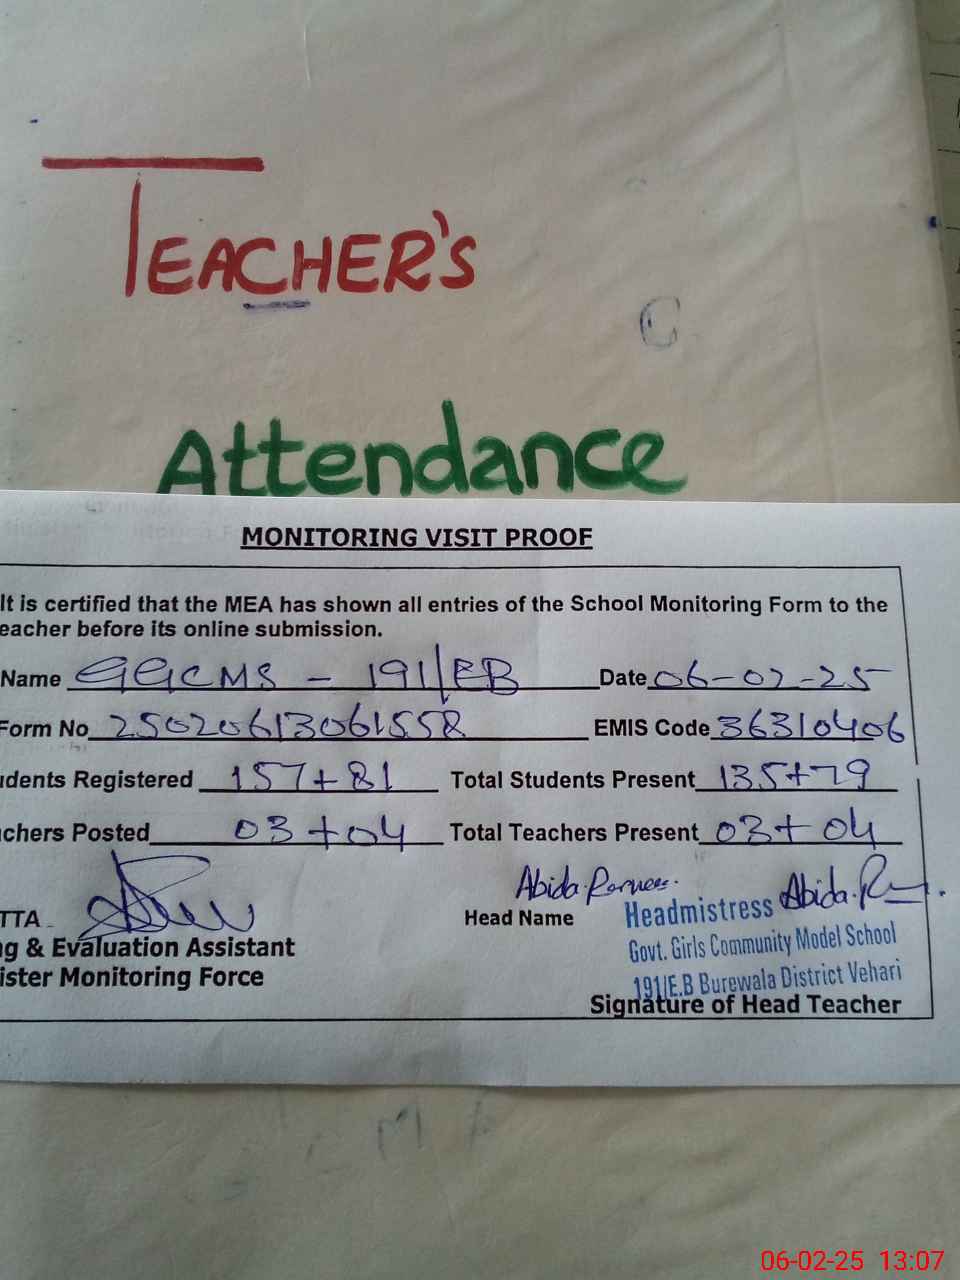 TEACHER'S
C
Attendance
MONITORING VISIT PROOF
It is certified that the MEA has shown all entries of the School Monitoring Form to the
eacher before its online submission.
Name GGCMS - 191/EB Date 06-02-25
Form No 25020613061558 EMIS Code 36310406
udents Registered 157+81 Total Students Present 135+79
chers Posted 03+04 Total Teachers Present 03+04
TTA
Head Name Abida
Headmistress Abida.
ng & Evaluation Assistant
Govt. Girls Community Model School
ister Monitoring Force
191/E.B Burewala District Vehari
Signature of Head Teacher
06-02-25 13:07